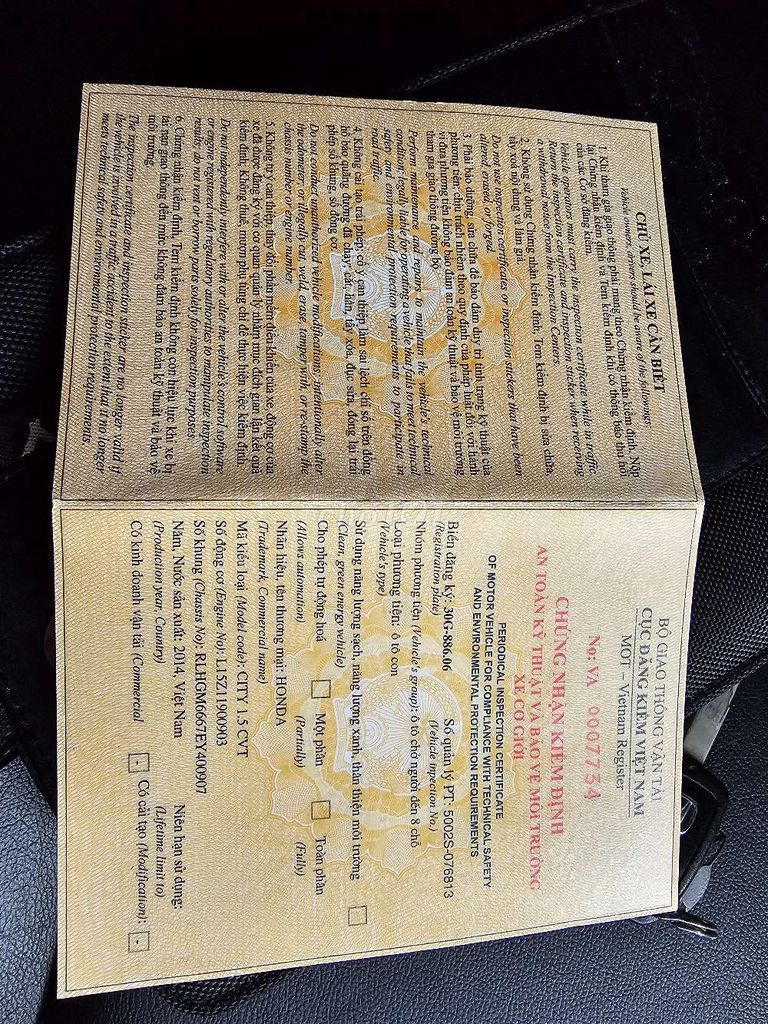 CHỦ XE, LÁI XE CẦN BIẾT
Vehicle owners, drivers should be aware of the followings:
1. Khi tham gia giao thông phải mang theo Chứng nhận kiểm định. Nộp
lại Chứng nhận kiểm định và Tem kiểm định khi có thông báo thu hồi
của các Cơ sở đăng kiểm.
Vehicle operators must carry the inspection certificate while in traffic.
Return the inspection certificate and inspection sticker when receiving
a withdrawal notice from the Inspection Centers.
2. Không sử dụng Chứng nhận kiểm định, Tem kiểm định bị sửa chữa,
tẩy xoá nội dung và làm giả.
Do not use inspection certificates or inspection stickers that have been
altered, erased, or forged.
3. Phải bảo dưỡng, sửa chữa để bảo đảm duy trì tình trạng kỹ thuật của
phương tiện; chịu trách nhiệm theo quy định của pháp luật đối với hành
vi đưa phương tiện không bảo đảm an toàn kỹ thuật và bảo vệ môi trường
tham gia giao thông đường bộ.
Perform maintenance and repairs to maintain the vehicle's technical
condition; legally liable for operating a vehicle that fails to meet technical
safety and environmental protection requirements to participate in
road traffic.
4. Không cải tạo trái phép; cố ý can thiệp làm sai lệch chỉ số trên đồng
hồ báo quãng đường đã chạy; cắt, hàn, tẩy xóa, đục sửa, đóng lại trái
phép số khung, số động cơ.
Do not conduct unauthorized vehicle modifications; intentionally alter
the odometer; or illegally cut, weld, erase, tamper with, or re-stamp the
chassis number or engine number.
5. Không tự ý can thiệp thay đổi phần mềm điều khiển của xe, động cơ của
xe đã được đăng ký với cơ quan quản lý nhằm mục đích gian lận kết quả
kiểm định. Không thuê, mượn phụ tùng chỉ để thực hiện việc kiểm định.
Do not independently interfere with or alter the vehicle's control software
or engine registered with regulatory authorities to manipulate inspection
results; do not rent or borrow parts solely for inspection purposes.
6. Chứng nhận kiểm định, Tem kiểm định không còn hiệu lực khi xe bị
tai nạn giao thông đến mức không đảm bảo an toàn kỹ thuật và bảo vệ
môi trường.
The inspection certificate and inspection sticker are no longer valid if
the vehicle is involved in a traffic accident to the extent that it no longer
meets technical safety and environmental protection requirements.
BỘ GIAO THÔNG VẬN TẢI
CỤC ĐĂNG KIỂM VIỆT NAM
MOT – Vietnam Register
No: VA 0007734
CHỨNG NHẬN KIỂM ĐỊNH
AN TOÀN KỸ THUẬT VÀ BẢO VỆ MÔI TRƯỜNG
XE CƠ GIỚI
PERIODICAL INSPECTION CERTIFICATE
OF MOTOR VEHICLE FOR COMPLIANCE WITH TECHNICAL SAFETY
AND ENVIRONMENTAL PROTECTION REQUIREMENTS
Biển đăng ký: 30G-886.06 Số quản lý PT: 5002S-076813
(Registration plate) (Vehicle inpection No.)
Nhóm phương tiện (Vehicle's group): ô tô chở người đến 8 chỗ
Loại phương tiện: ô tô con
(Vehicle's type)
Sử dụng năng lượng sạch, năng lượng xanh, thân thiện môi trường
(Clean, green energy vehicle)
Cho phép tự động hoá Một phần Toàn phần
(Allows automation) (Partially) (Fully)
Nhãn hiệu, tên thương mại: HONDA
(Trademark, Commercial name)
Mã kiểu loại (Model code): CITY 1.5 CVT
Số động cơ (Engine No): L15Z11900903
Số khung (Chassis No): RLHGM6667EY400907
Năm, Nước sản xuất: 2014, Việt Nam Niên hạn sử dụng:
(Production year, Country) (Lifetime limit to)
Có kinh doanh vận tải (Commercial - Có cải tạo (Modification): -